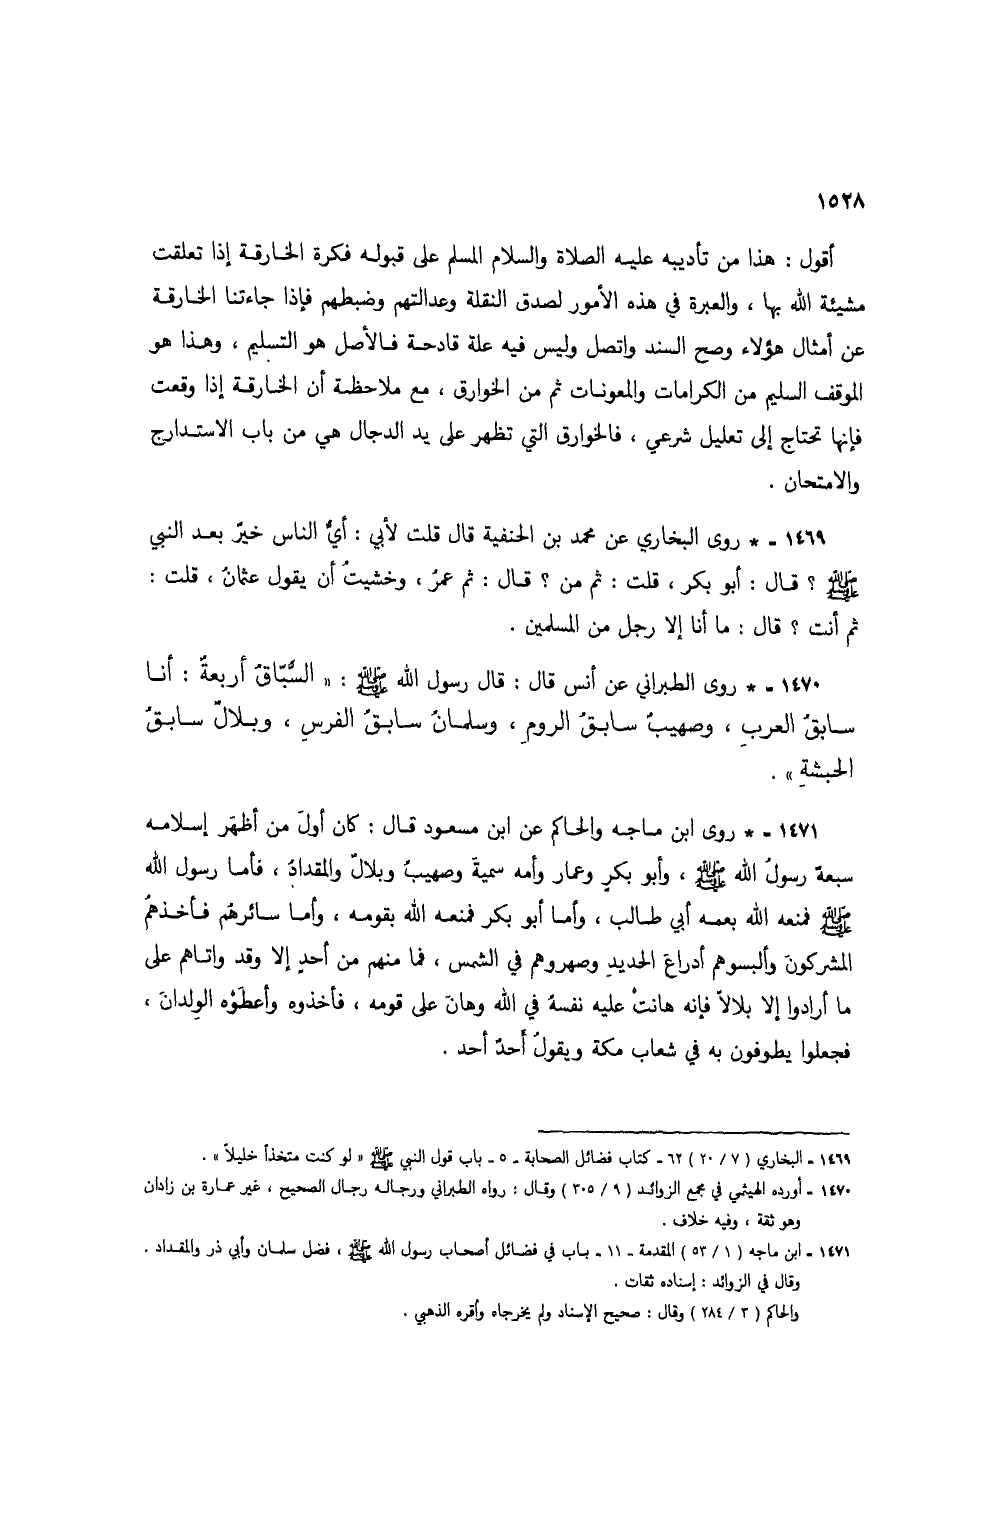 ١٥٢٨
أقول : هذا من تأديبه عليه الصلاة والسلام المسلم على قبوله فكرة الخارقة إذا تعلقت
مشيئة الله بها ، والعبرة في هذه الأمور لصدق النقلة وعدالتهم وضبطهم فإذا جاءتنا الخارقة
عن أمثال هؤلاء وصح السند واتصل وليس فيه علة قادحة فالأصل هو التسليم ، وهذا هو
الموقف السليم من الكرامات والمعونات ثم من الخوارق ، مع ملاحظة أن الخارقة إذا وقعت
فإنها تحتاج إلى تعليل شرعي ، فالخوارق التي تظهر على يد الدجال هي من باب الاستدراج
والامتحان .
١٤٦٩ - * روى البخاري عن محمد بن الحنفية قال قلت لأبي : أيُّ الناس خيرٌ بعد النبي
ﷺ ؟ قال : أبو بكر ، قلت : ثم من ؟ قال : ثم عمرُ ، وخشيتُ أن يقول عثمانُ ، قلت :
ثم أنت ؟ قال : ما أنا إلا رجل من المسلمين .
١٤٧٠ - * روى الطبراني عن أنس قال : قال رسول الله ﷺ : « السُّبَّاقُ أربعةٌ : أنا
سابقُ العربِ ، وصهيبٌ سابقُ الرومِ ، وسلمانُ سابقُ الفرسِ ، وبلالٌ سابقُ
الحبشةِ » .
١٤٧١ - * روى ابن ماجه والحاكم عن ابن مسعود قال : كان أولَ من أظهَر إسلامه
سبعةٌ رسولُ الله ﷺ ، وأبو بكرٍ وعمار وأمه سميةُ وصهيبٌ وبلالٌ والمقدادُ ، فأما رسول الله
ﷺ فمنعه الله بعمه أبي طالب ، وأما أبو بكر فمنعه الله بقومه ، وأما سائرهُم فأخذهمُ
المشركونَ وألبسوهم أدراعَ الحديدِ وصهروهم في الشمس ، فما منهم من أحدٍ إلا وقد واتاهم على
ما أرادوا إلا بلالاً فإنه هانتْ عليه نفسهُ في الله وهانَ على قومه ، فأخذوه وأعطَوْه الولدانَ ،
فجعلوا يطوفون به في شعاب مكة ويقولُ أَحدٌ أحد .
١٤٦٩ - البخاري ( ٧ / ٢٠ ) ٦٢ - كتاب فضائل الصحابة - ٥ - باب قول النبي ﷺ « لو كنت متخذاً خليلاً » .
١٤٧٠ - أورده الهيثمي في مجمع الزوائد ( ٩ / ٣٠٥ ) وقال : رواه الطبراني ورجاله رجال الصحيح ، غير عمارة بن زادان
وهو ثقة ، وفيه خلاف .
١٤٧١ - ابن ماجه ( ١ / ٥٣ ) المقدمة - ١١ - باب في فضائل أصحاب رسول الله ﷺ ، فضل سلمان وأبي ذر والمقداد .
وقال في الزوائد : إسناده ثقات .
والحاكم ( ٣ / ٢٨٤ ) وقال : صحيح الإسناد ولم يخرجاه وأقره الذهبي .